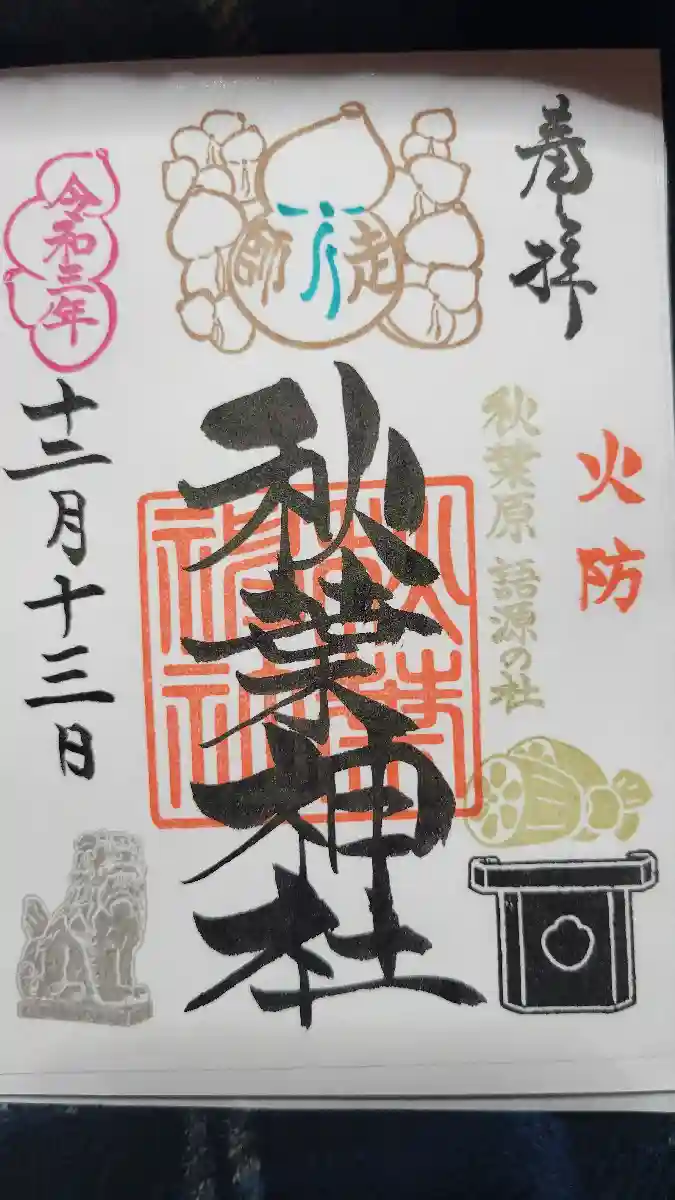 奉拝
火防
秋葉原 語源の社
走師
秋葉神社
秋葉神社
令和三年
十二月十三日